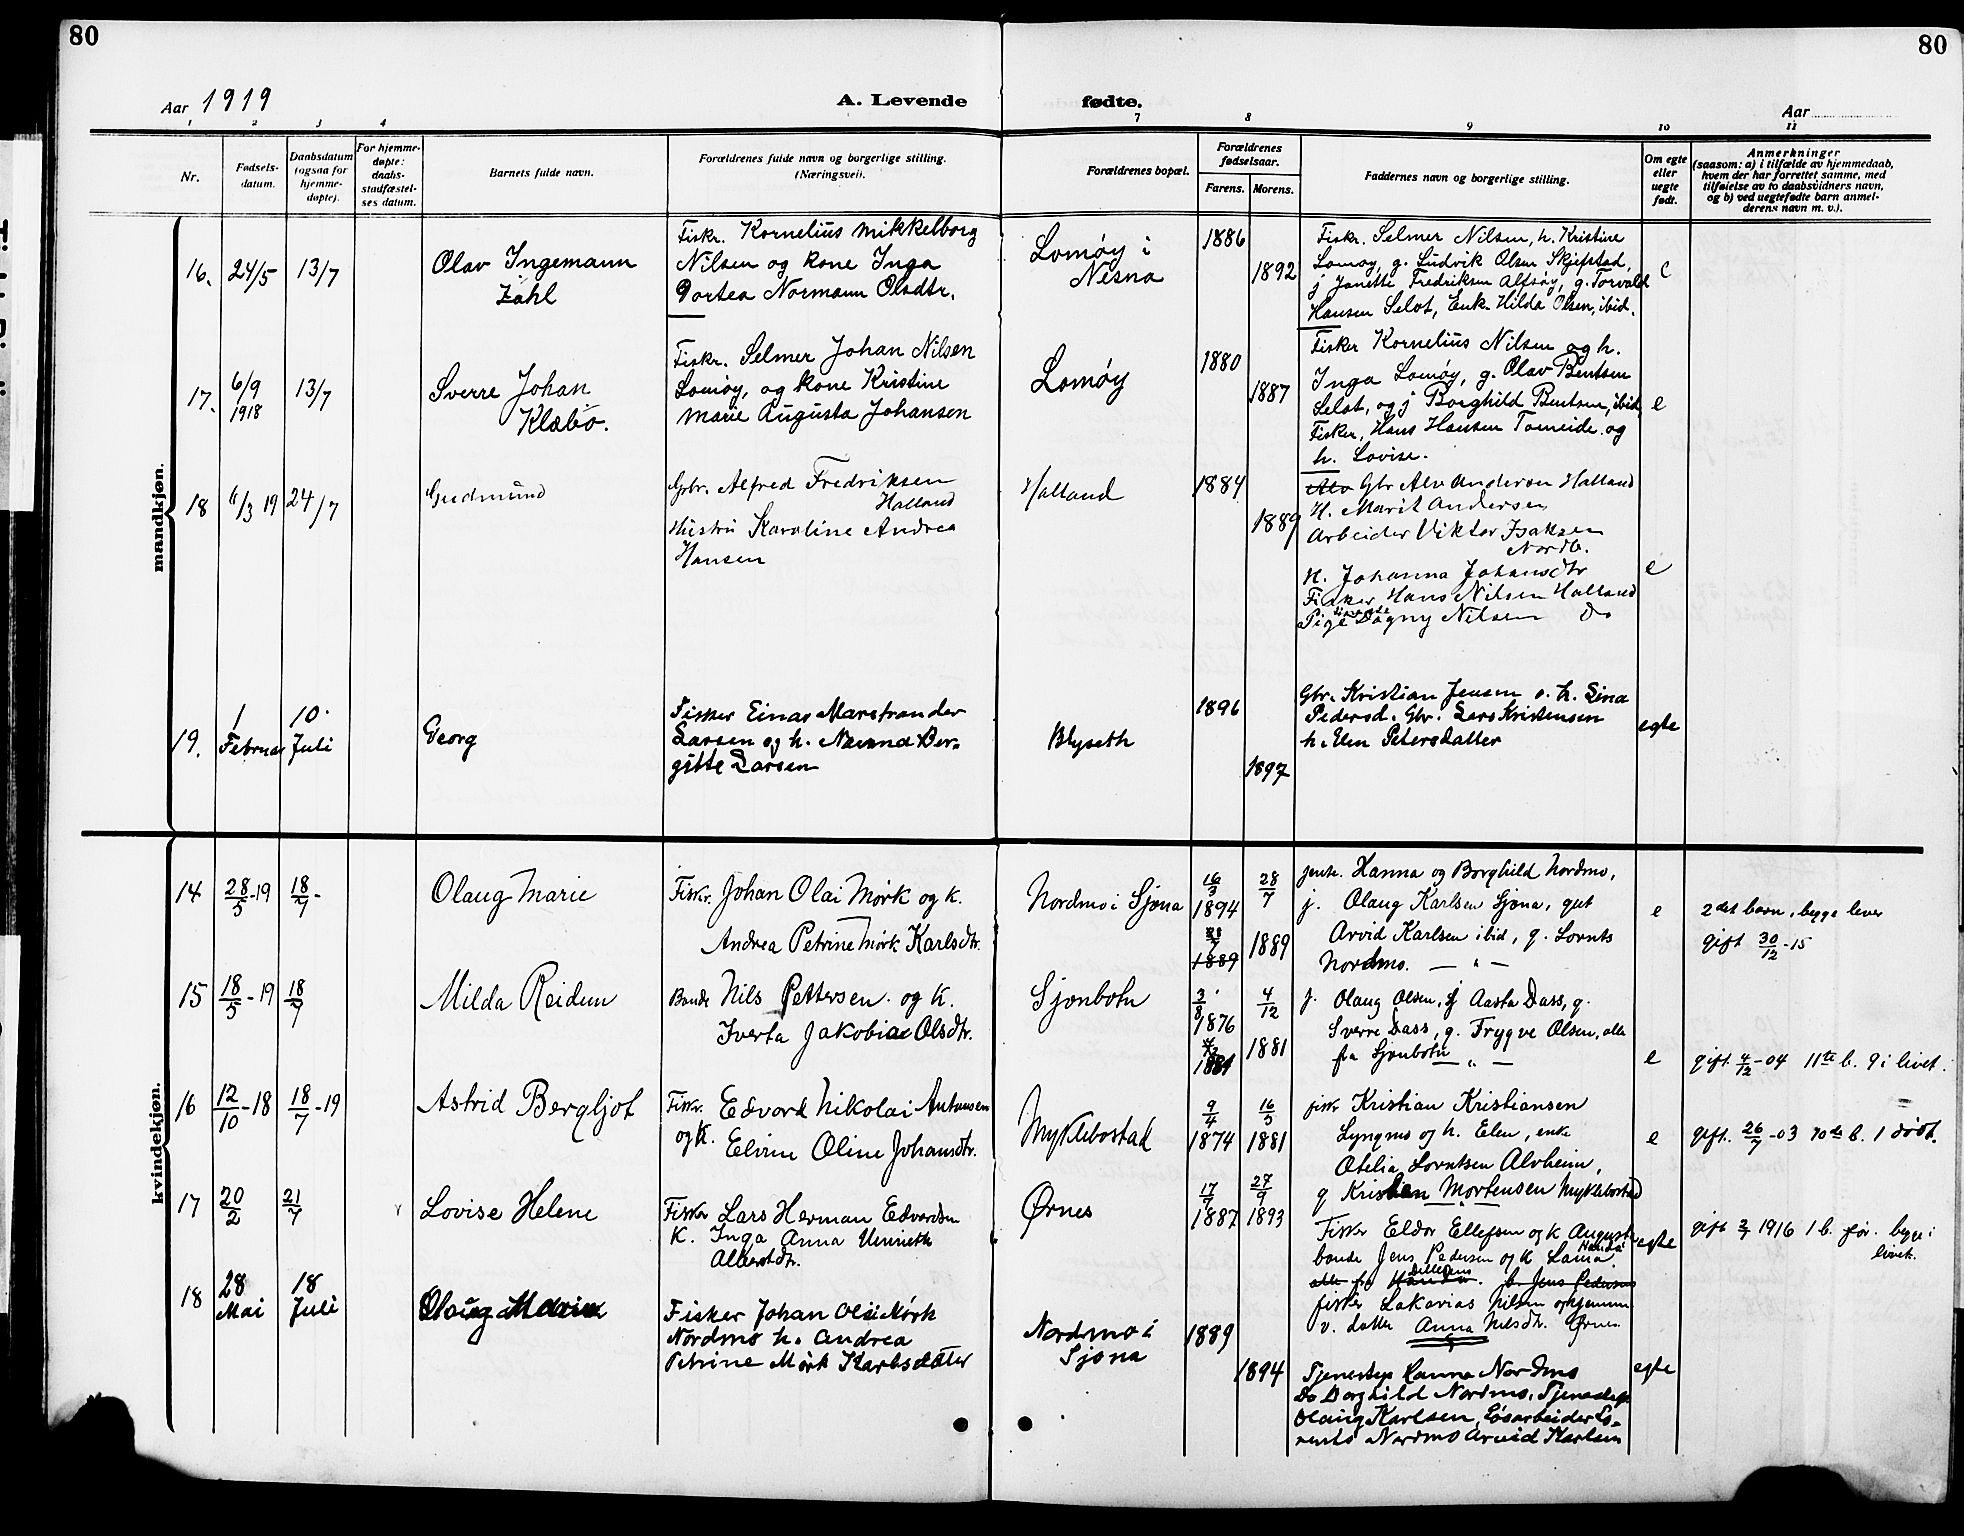 80
80
Aar 1919
A. Levende
fødte.
Aar
1 2 3 4 7 8 9 10 11
Nr.
Fødsels-
datum.
Daabsdatum
(ogsaa for
hjemme-
døpte).
For hjemme-
døpte:
daabs-
stadfæstel-
ses datum.
Barnets fulde navn.
Forældrenes fulde navn og borgerlige stilling.
(Næringsvei).
Forældrenes bopæl.
Forældrenes
fødselsaar.
Farens. Morens.
Faddernes navn og borgerlige stilling.
Om egte
eller
uegte
født.
Anmerkninger
(saasom: a) i tilfælde av hjemmedaab,
hvem der har forrettet samme, med
tilføielse av to daabsvidners navn,
og b) ved uegtefødte barn anmel-
derens navn m. v.).
mandkjøn.
16. 24/5 13/7
Olav Ingemann
Zahl
Fiskr. Kornelius Mikkelborg
Nilsen og kone Inga
Dortea Normann Olsdtr.
Lomøy i
Nesna
1886
1892
Fiskr. Selmer Nilsen, h. Kristine
Lomøy, g. Ludvik Olsen Skjefstad,
j Janette Fredriksen Alfsøy, g. Torvald
Hansen Seløt, Enk. Hilda Olsen, ibid.
e
17. 6/9
1918
13/7
Sverre Johan
Klæbo.
Fiskr. Selmer Johan Nilsen
Lomøy, og kone Kristine
Marie Augusta Johansen
Lomøy
1880
1887
Fisker Kornelius Nilsen og h.
Inga Lomøy, g. Olav Bentsen
Seløt, og j Borghild Bentsen, ibid
Fisker, Hans Hansen Tomeide og
h. Lovise.
e
18 6/3 19 24/7
Gudmund
Gbr. Alfred Fredriksen
Halland
Hustru Karoline Andrea
Hansen
Halland
1884
1889
Alv Gbr Alv Andersen Halland
H. Marit Andersen
Arbeider Viktor Isaksen
Nordv.
H. Johanna Johansdtr
Fisker Hans Nilsen Halland
Pige Dagny Nilsen Do
e
19. 1
Februar
10.
Juli
Georg
Fisker Einar Marstrander
Larsen og h. Nanna Ber-
gitte Larsen
Blyseth
1896
1897
Gbr. Kristian Jensen o. h. Lina
Pedersd. Gbr. Lars Kristensen
h. Elen Petersdatter
egte
kvindekjøn.
14 28/5-19 18/7-
Olaug Marie
Fiskr. Johan Olai Mørk og k.
Andrea Petrine Mørk Karlsdtr.
Nordmo i Sjona
16/3
1894
28/7
1889
28/7
1889
jente. Hanna og Borghild Nordmo,
j. Olaug Karlsen Sjona, gut
Arvid Karlsen ibid, g. Lornts
Nordmo. — " —
e
2det barn, begge lever
gift 30/12-15
15 18/5-19 18/7
Milda Reidun
Bonde Nils Pettersen og k.
Iverta Jakobine Olsdtr.
Sjonbotn
3/8
1876
4/12
1881
4/12
1881
j. Olaug Olsen, j Aasta Dass, g.
Sverre Dass, g. Trygve Olsen, alle
fra Sjonbotn — " —
e
gift 4/12-04 11te b. 9 i livet.
16 12/10-18 18/7-19
Astrid Bergljot
Fiskr. Edvard Nikolai Antonsen
og k. Elvine Oline Johansdtr.
Myklebostad
9/4
1874
16/5
1881
fiskr Kristian Kristiansen
Lyngmo og h. Elen, enke
Otelia Lorntsen Alvheim,
g Kristian Mortensen Myklebostad
e
gift. 26/7-03 10de b. 1 død.
17 20/2 21/7
Lovise Helene
Fisker Lars Herman Edvardsen
K. Inga Anna Henriette
Albertdtr.
Ørnes
17/7
1887
27/9
1893
Fisker Eldor Ellefsen og k Augusta
bonde Jens Pedersen og k Laura
alle fra Handn. b. Jens Pedersen
fisker Sakarias Nilsen og hjemme
v. datter Anna Nilsdtr. Ørnes
egte
gift 2/7 1916 1 b. før. begge i
livet.
18 28
Mai
18
Juli
Olaug Marie
Fisker Johan Olai Mørk
Nordmo h. Andrea
Petrine Mørk Karlsdatter
Nordmo i
Sjona
1889
1894
Tjenestep Hanna Nordmo
Do Borghild Nordmo, Tjenestep.
Olaug Karlsen, Løsarbeider Lo-
rents Nordmo Arvid Karlsen
egte